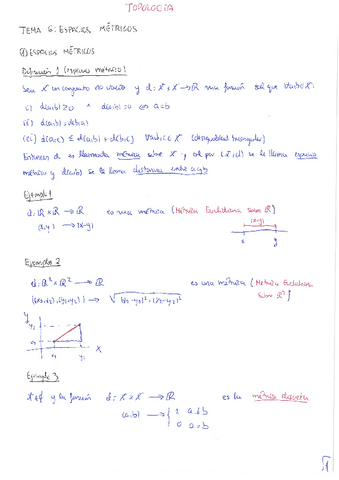 TOPOLOGÍA
TEMA 6: ESPACIOS MÉTRICOS
ESPACIOS MÉTRICOS
Definición 1 (espacio métrico)
Sea X un conjunto no vacío y d: X x X → ℝ una función tal que ∀a,b,c∈X:
i) d(a,b) ≥ 0 ^ d(a,b)=0 ⇔ a=b
ii) d(a,b)=d(b,a)
iii) d(a,c) ≤ d(a,b)+d(b,c) ∀a,b,c ∈ X (desigualdad triangular)
Entonces d es llamada métrica sobre X y al par (X,d) se le llama espacio
métrico y d(a,b) se le llama distancia entre a y b
Ejemplo 1
d: ℝ x ℝ → ℝ es una métrica (Métrica Euclidiana sobre ℝ)
(x,y) → |x-y|
|x-y|
x y
Ejemplo 2
d: ℝ² x ℝ² → ℝ es una métrica (Métrica Euclidiana
sobre ℝ²)
y
x
Ejemplo 3
X≠∅ y la función d: X x X → ℝ es la métrica discreta
(a,b) → { 1 a≠b
0 a=b
1